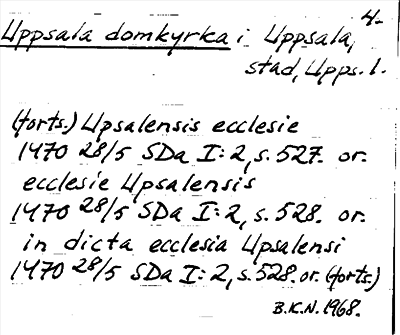 4.
Uppsala domkyrka i Uppsala,
stad, Upps. l.
(forts.) Upsalensis ecclesie
1470 28/5 SDa I:2, s. 527. or.
ecclesie Upsalensis
1470 28/5 SDa I:2, s. 528. or.
in dicta ecclesia Upsalensi
1470 28/5 SDa I:2, s. 528. or. (forts.)
B.K.N. 1968.